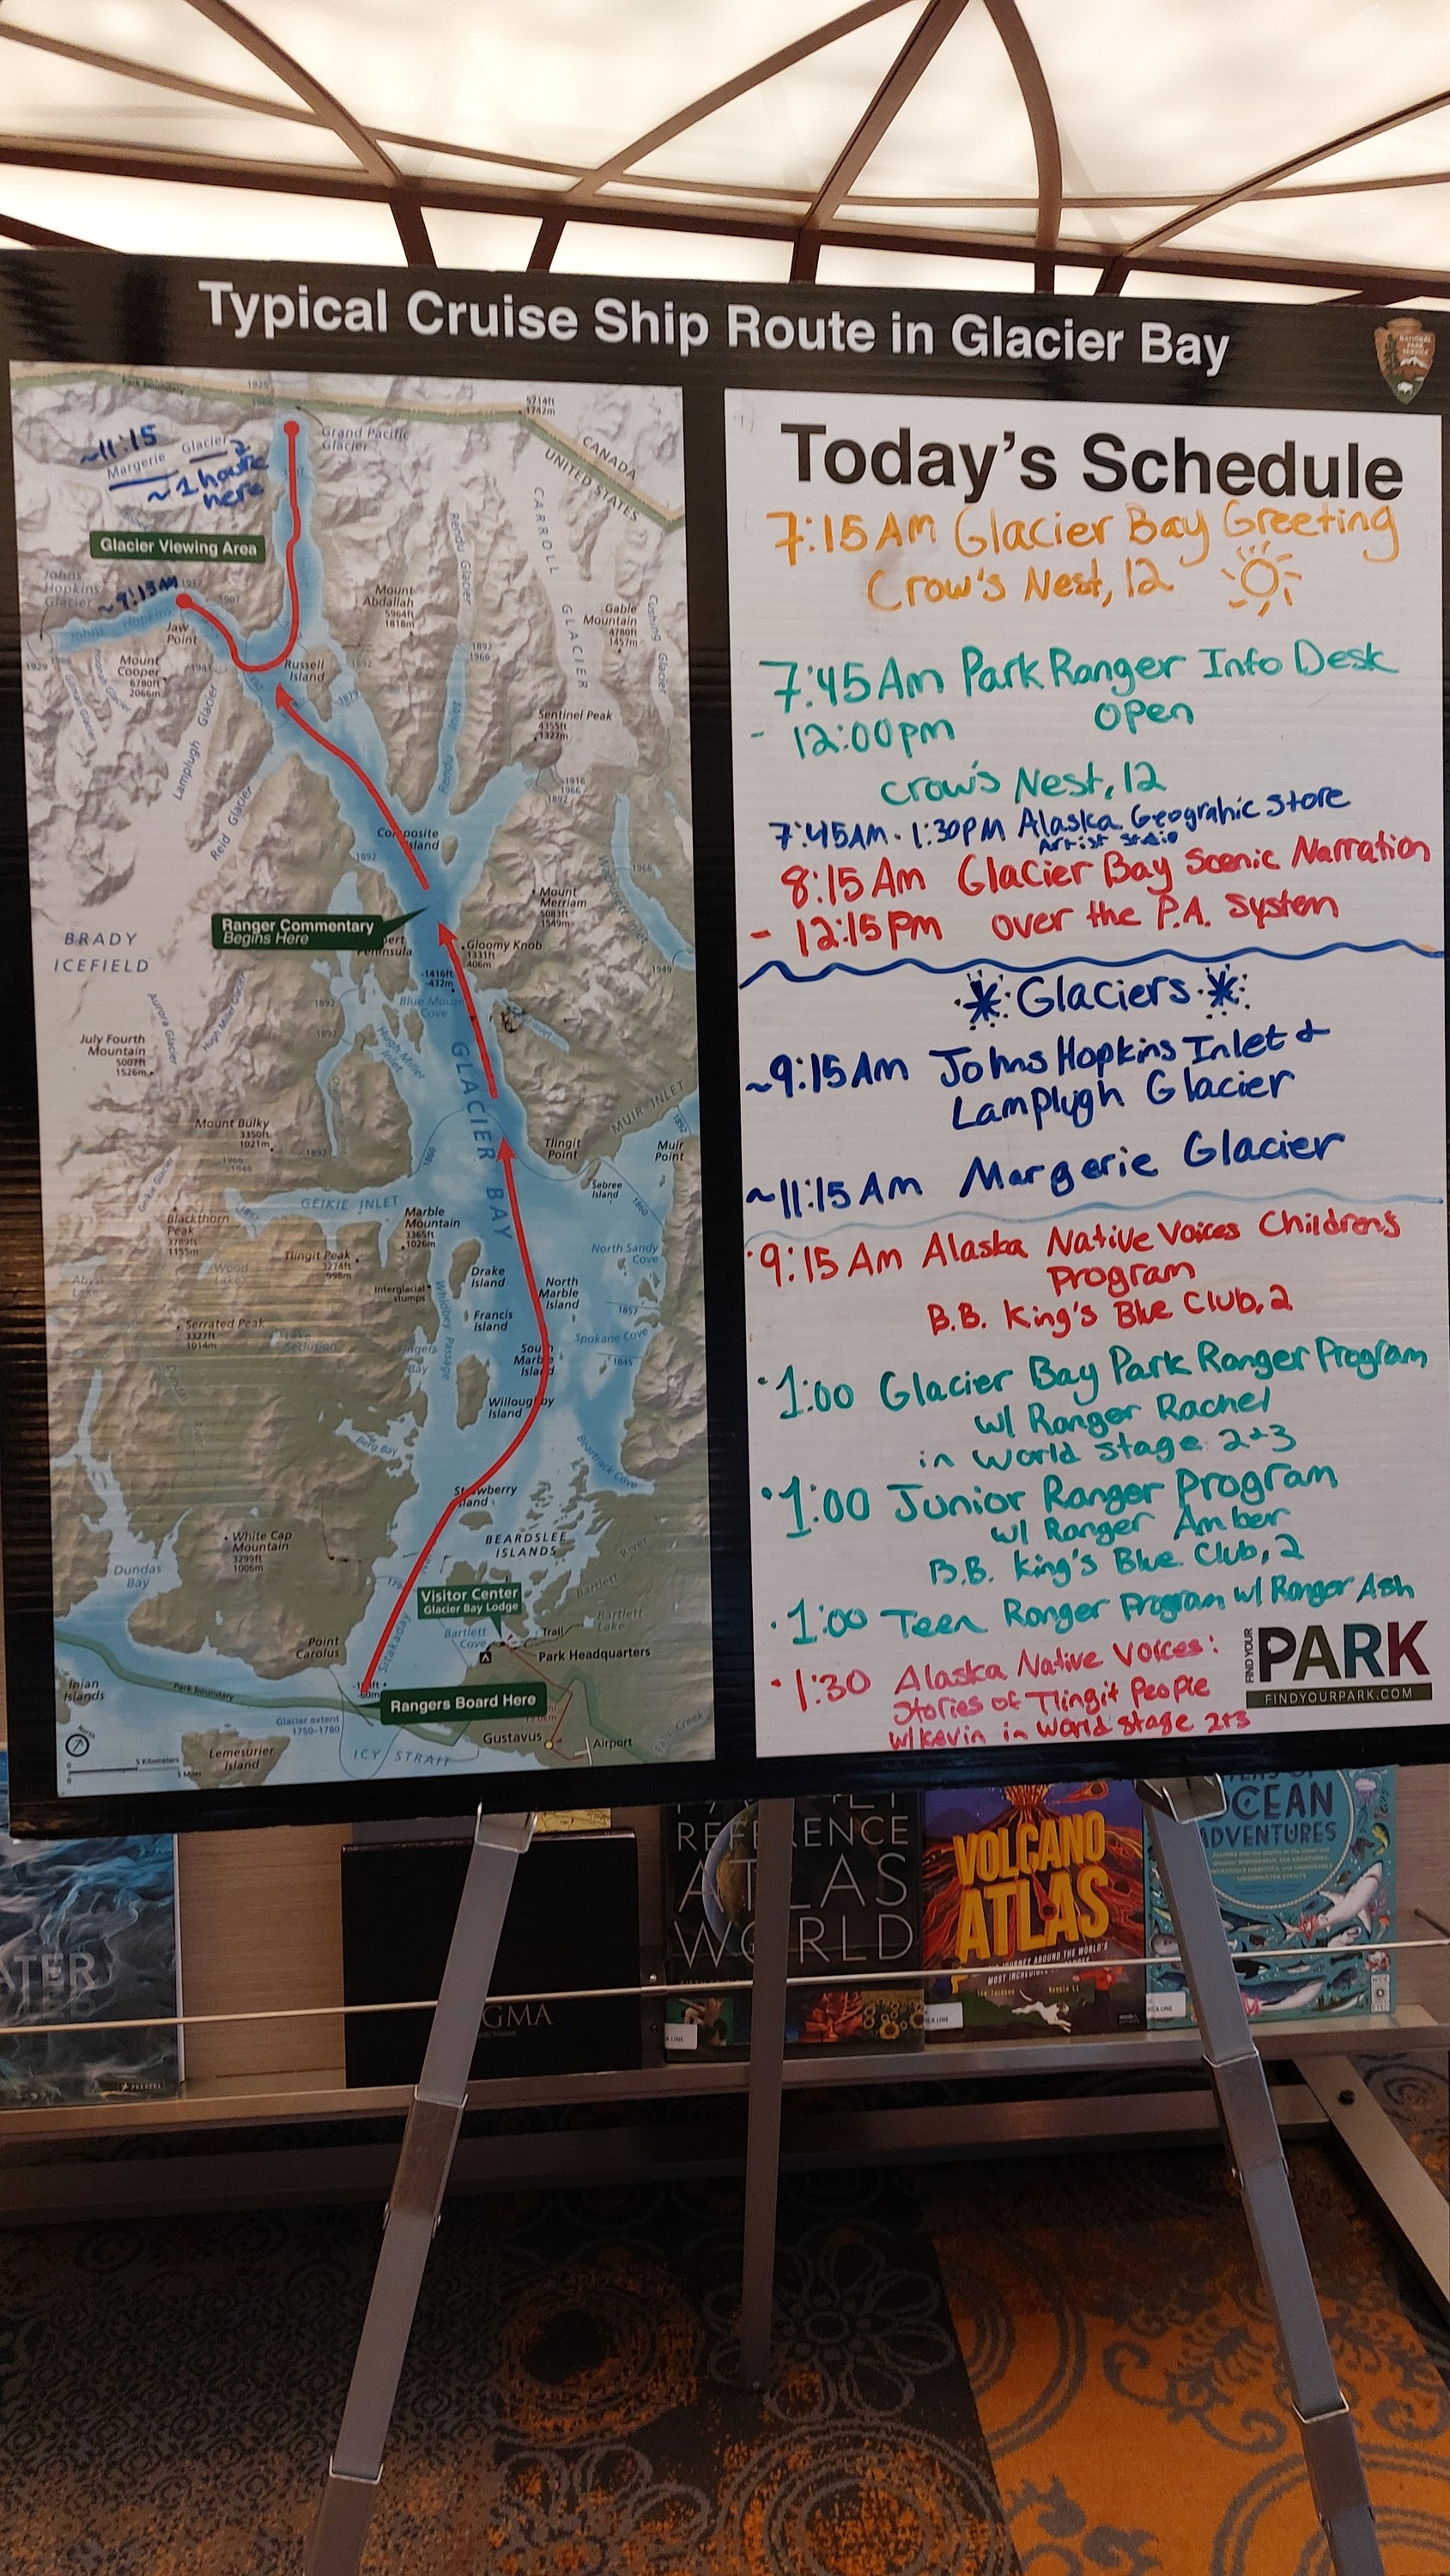 Typical Cruise Ship Route in Glacier Bay
NATIONAL
PARK
SERVICE
Park boundary
5714ft
1742m
CANADA
UNITED STATES
~11:15
Margerie Glacier
~1 hour
here
Grand Pacific
Glacier
Glacier Viewing Area
Johns
Hopkins
Glacier
~9:15AM
Johns Hopkins
1907
Jaw
Point
Mount
Abdallah
5964ft
1818m
Rendu Glacier
CARROLL
GLACIER
Gable
Mountain
4780ft
1457m
Cushing Glacier
Mount
Cooper
6780ft
2066m
Russell
Island
1892
1966
1892
1879
Lamplugh Glacier
Reid Glacier
Rendu Inlet
Sentinel Peak
4355ft
1327m
1916
1966
1892
Composite
Island
1892
1966
Ranger Commentary
Begins Here
Peninsula
Mount
Merriam
5083ft
1549m
Gloomy Knob
1331ft
406m
1949
BRADY
ICEFIELD
-1416ft
-432m
Blue Mouse
Cove
1892
1892
Aurora Glacier
Hugh Miller Glacier
Hugh Miller
Inlet
July Fourth
Mountain
5007ft
1526m
GLACIER BAY
MUIR INLET
1892
Mount Bulky
3350ft
1021m
1892
1860
Tlingit
Point
Muir
Point
Sebree
Island
1860
GEIKIE INLET
Marble
Mountain
3365ft
1026m
Blackthorn
Peak
3789ft
1155m
Tlingit Peak
3274ft
998m
Wood
Lake
Drake
Island
North Sandy
Cove
Interglacial
stumps
North
Marble
Island
1857
Francis
Island
Whidbey Passage
Serrated Peak
3327ft
1014m
Spokane Cove
1845
South
Marble
Island
Willoughby
Island
Berg Bay
Beartrack Cove
Strawberry
Island
White Cap
Mountain
3299ft
1006m
BEARDSLEE
ISLANDS
River
Dundas
Bay
Visitor Center
Glacier Bay Lodge
Bartlett
Bartlett
Lake
Bartlett
Cove
Trail
Park Headquarters
Point
Carolus
Sitakaday
Inian
Islands
Park boundary
Rangers Board Here
Glacier extent
1750–1780
Gustavus
Airport
North
5 Kilometers
5 Miles
Lemesurier
Island
ICY STRAIT
Today's Schedule
7:15AM Glacier Bay Greeting
Crow's Nest, 12
7:45AM Park Ranger Info Desk
- 12:00pm open
Crow's Nest, 12
7:45AM - 1:30PM Alaska Geograhic Store
8:15AM Glacier Bay Scenic Narration
- 12:15pm over the P.A. system
Glaciers
~9:15AM Johns Hopkins Inlet &
Lamplugh Glacier
~11:15AM Margerie Glacier
• 9:15AM Alaska Native Voices Children's
Program
B.B. King's Blue Club, 2
• 1:00 Glacier Bay Park Ranger Program
w/ Ranger Rachel
in world stage 2+3
• 1:00 Junior Ranger Program
w/ Ranger Amber
B.B. King's Blue Club, 2
• 1:00 Teen Ranger Program w/ Ranger Ash
• 1:30 Alaska Native Voices:
Stories of Tlingit People
w/ Kevin in world stage 2+3
FIND YOUR
PARK
FINDYOURPARK.COM
REFERENCE
ATLAS
WORLD
VOLCANO
ATLAS
A JOURNEY AROUND THE WORLD'S
OCEAN
ADVENTURES
PRESTEL